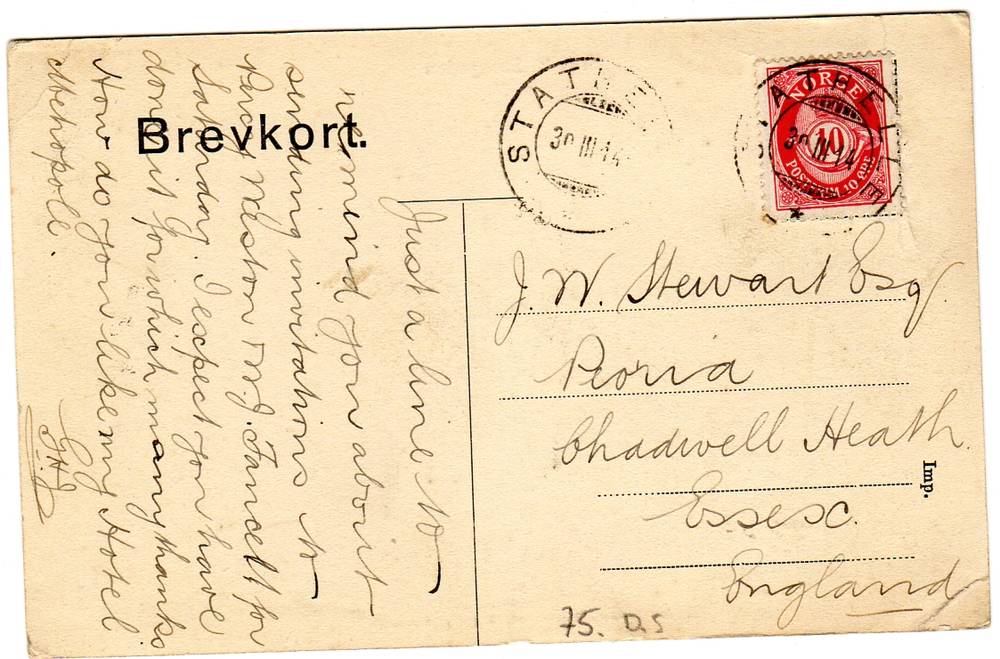 Brevkort.
STATHE
30 III 14
STATHELLE
30 III 14
NORGE
10
POSTFRIM. 10 ØRE
Just a line to
remind you about
sending invitations to
Percy Weston & W. J. Fancett for
Saturday. I expect you have
done it for which many thanks
How do you like my Hotel
Metropole.
G.H.J
J. W. Stewart Esq.
Peoria
Chadwell Heath.
Essex.
England
Imp.
75. D.S